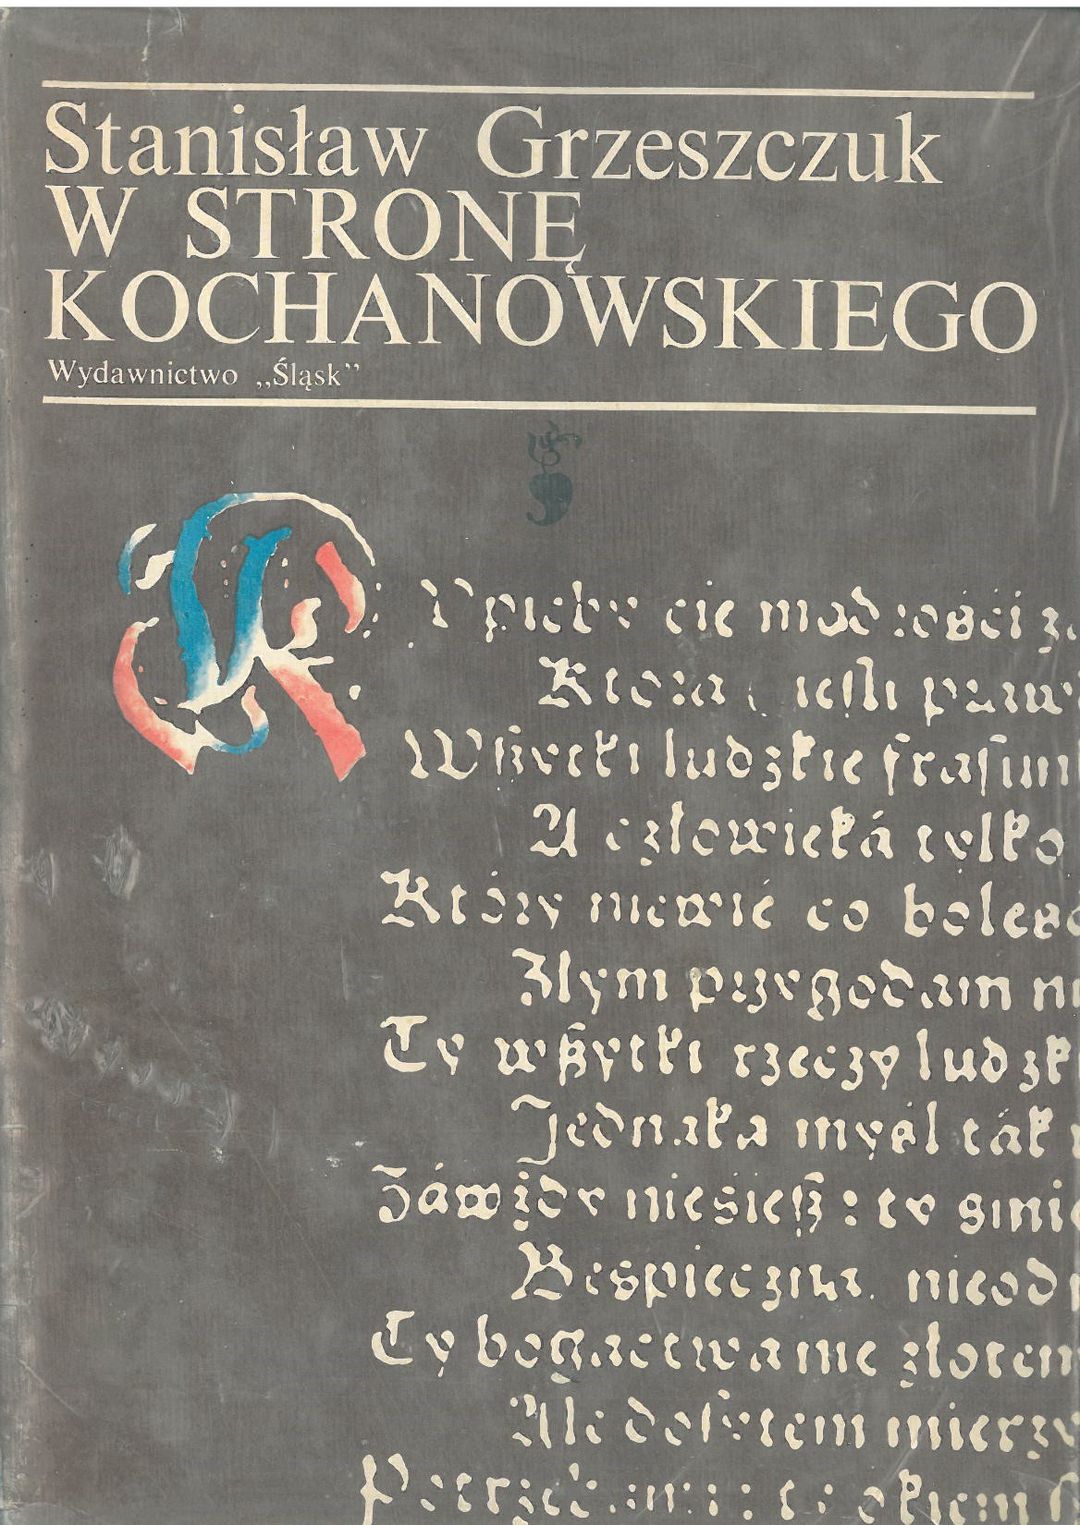 Stanisław Grzeszczuk
W STRONĘ
KOCHANOWSKIEGO
Wydawnictwo „Śląsk”
KVpićby cię mądrości z
Ktora ieſli praw
Wßytki ludzkie fraſun
A człowieká tylko
Który niewie co boleś
Złym przygodam n
Ty wßytki rzeczy ludzk
Jednaką myśl ták
Záwżdy nieśieß: ty śmi
Bespieczna, nieod
Ty bogactwa nie złotem
Ale doſytem mierzy
Potrzebami: ty okiem